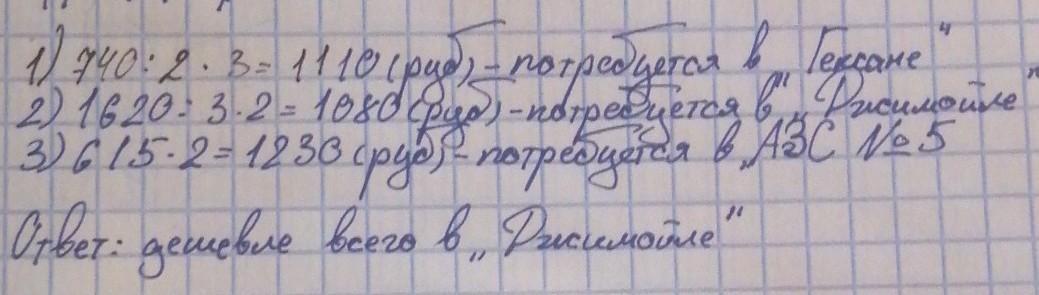 1) 740:2·3=1110(руб)-потребуется в „Гексане"
2) 1620:3·2=1080(руб)-потребуется в „Джимойле"
3) 615·2=1230(руб)-потребуется в „АЗС №5
Ответ: дешевле всего в „Джимойле"